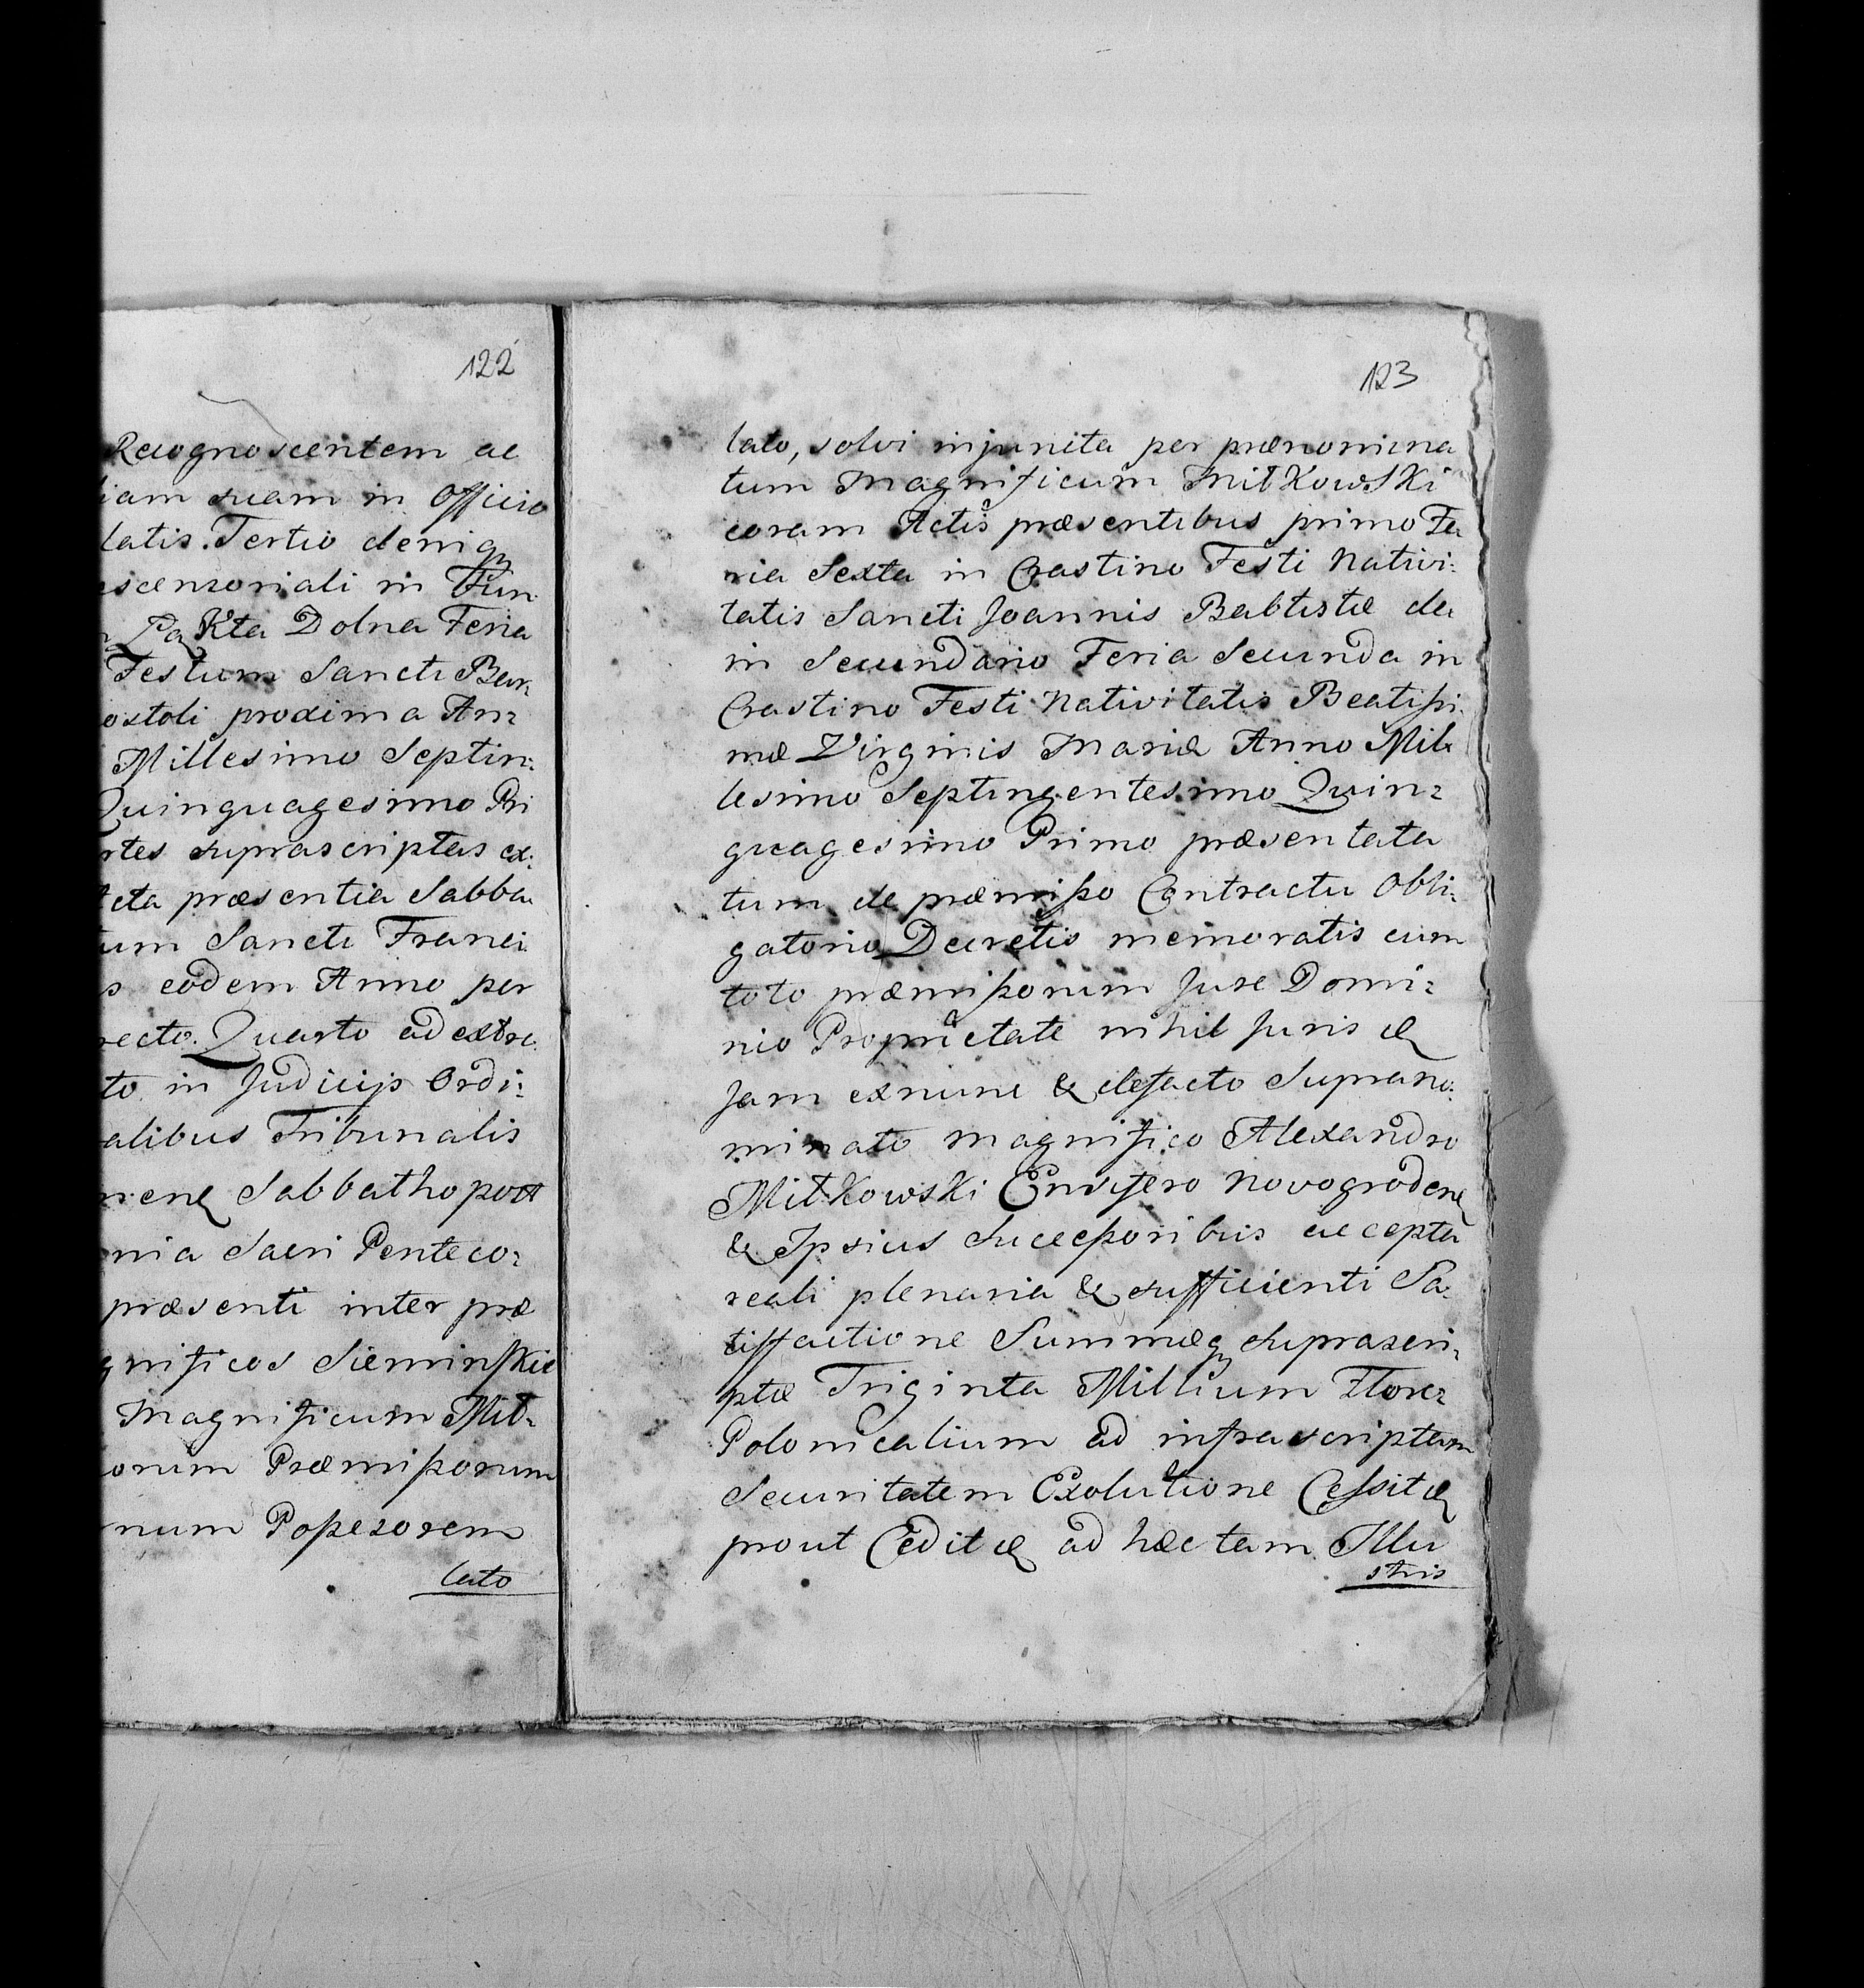 122
Recognoscentem ac
iam suam in Officio
latis. Tertio deniq
scensoriali in Fun
Łąkta Dolna Feria
Festum Sancti Bar,
ostoli proxima An,
Millesimo Septin,
Quinquagesimo Pri
rtes suprascriptas ex,
cta præsentia Sabba
um Sancti Franci
s eodem Anno per
recto. Quarto ad extre
to in Judicijs Ordi,
alibus Tribunalis
nen Sabbatho post
nia Sacri Penteco,
præsenti inter præ
gnificos Sieminskie
Magnificum Mił,
orum Præmissorum
num Possesorem
lato
123
lato, solvi injuncta per prænomina
tum Magnificum Miłkowski
coram Actis præsentibus primo Fe
ria Sexta in Crastino Festi Nativi,
tatis Sancti Joannis Babtistæ de
in Secundario Feria Secunda in
Crastino Festi Nativitatis Beatissi,
mæ Virginis Mariæ Anno Mil,
lesimo Septingentesimo Quin,
quagesimo Primo præsentata
tum de præmisso Contractu Obli,
gatorio Decretis memoratis cum
toto præmissorum Jure Domi,
nio Proprietate nihil Juris &
Jam exnunc & defacto Suprano,
minato Magnifico Alexandro
Miłkowski Ensifero Novogroden
& Ipsius Successoribus accepta
reali plenaria & sufficienti Sa,
tissfactione Summæq suprascri,
ptæ Triginta Millium Flore,
Polonicalium ad infrascriptam
Securitatem Exolutione Cessit &
prout Cedit & ad hæc tam Illu
stris